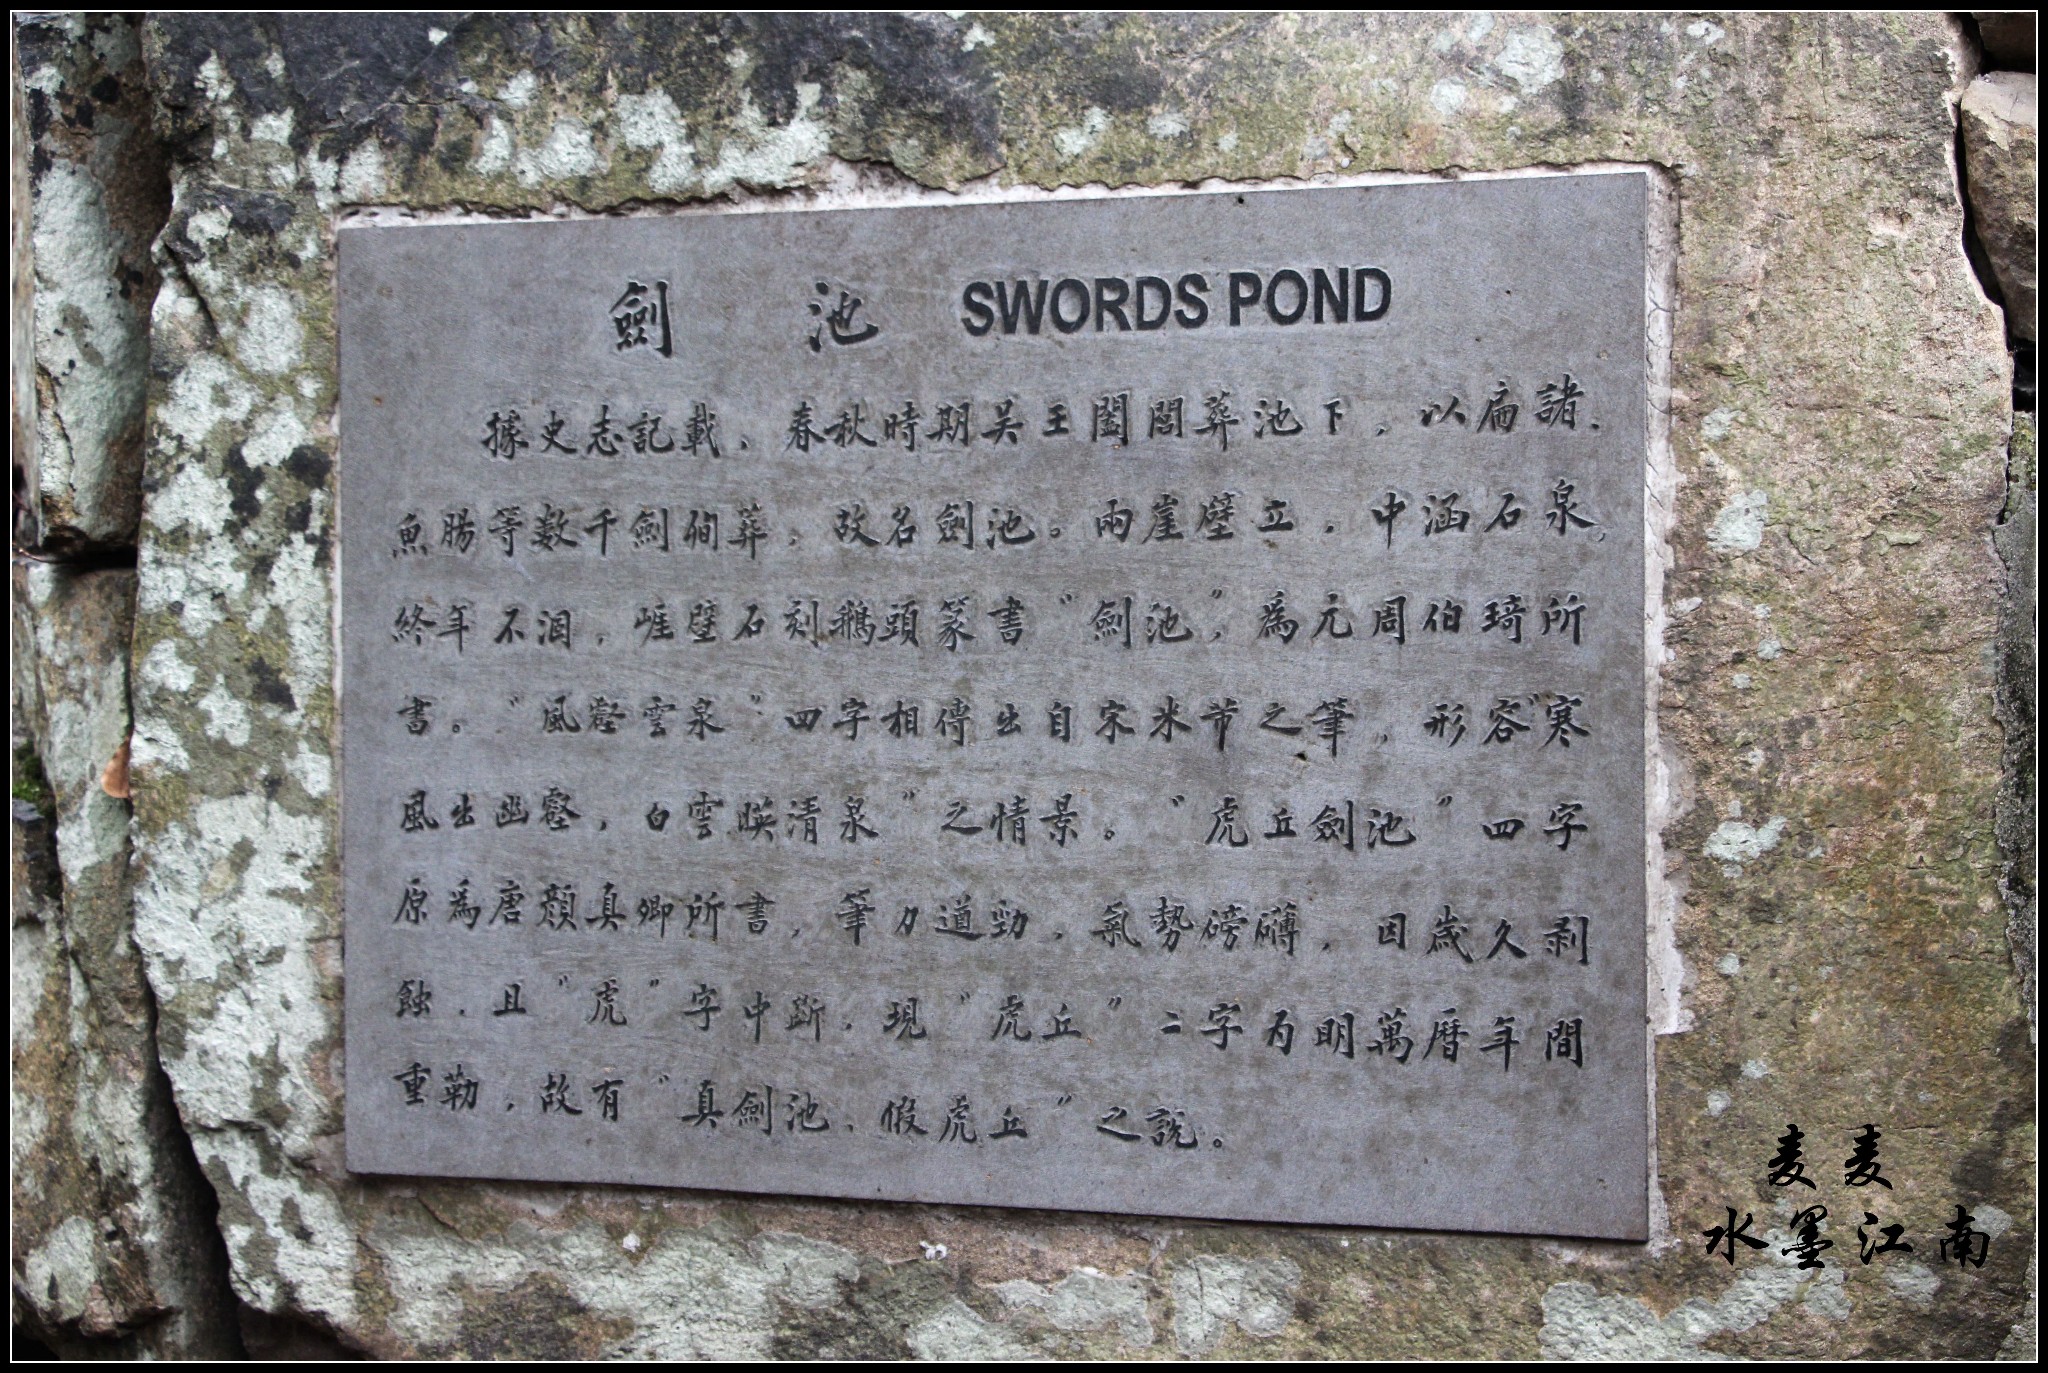 劍池 SWORDS POND
據史志記載，春秋時期吴王闔閭葬池下，以扁諸．
魚腸等數千劍殉葬，故名劍池。兩崖壁立，中涵石泉，
終年不涸，崖壁石刻鵝頭篆書“劍池”，為元周伯琦所
書。“風壑雲泉”四字相傳出自宋米芾之筆，形容“寒
風出幽壑，白雲映清泉”之情景。“虎丘劍池”四字
原為唐顏真卿所書，筆力遒勁，氣勢磅礴，因歲久剥
蝕，且“虎”字中斷，現“虎丘”二字为明萬曆年間
重勒，故有“真劍池，假虎丘”之說。
麦麦
水墨江南